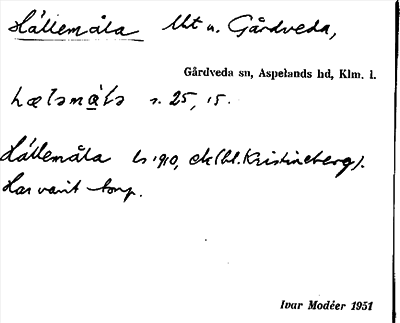 Hällemåla lht u. Gårdveda,
Gårdveda sn, Aspelands hd, Klm. l.
hæləmåla s. 25, 15.
Hällemåla ls 1910, ek (bl. Kristineberg).
Har varit torp.
Ivar Modéer 1951